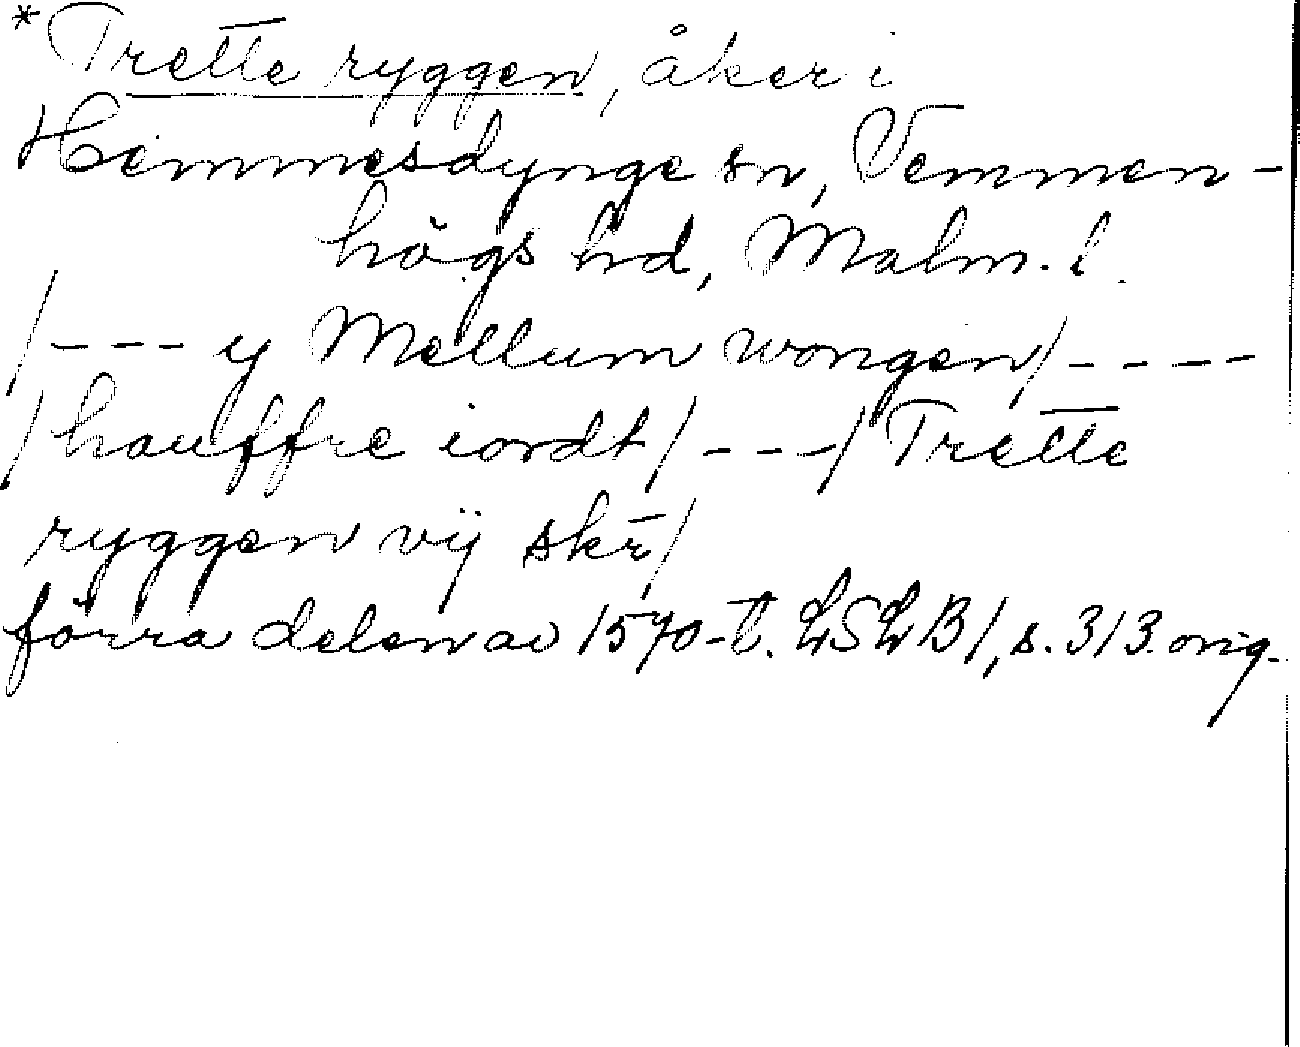 *Trette ryggen, åker i
Hemmesdynge sn, Vemmen-
högs hd, Malm. l.
/--- y Mellum wongen/----
/hauffre iordt/---/Trette
ryggen vij skr̄/
förra delen av 1570-t. LSLB1, s. 313. orig.